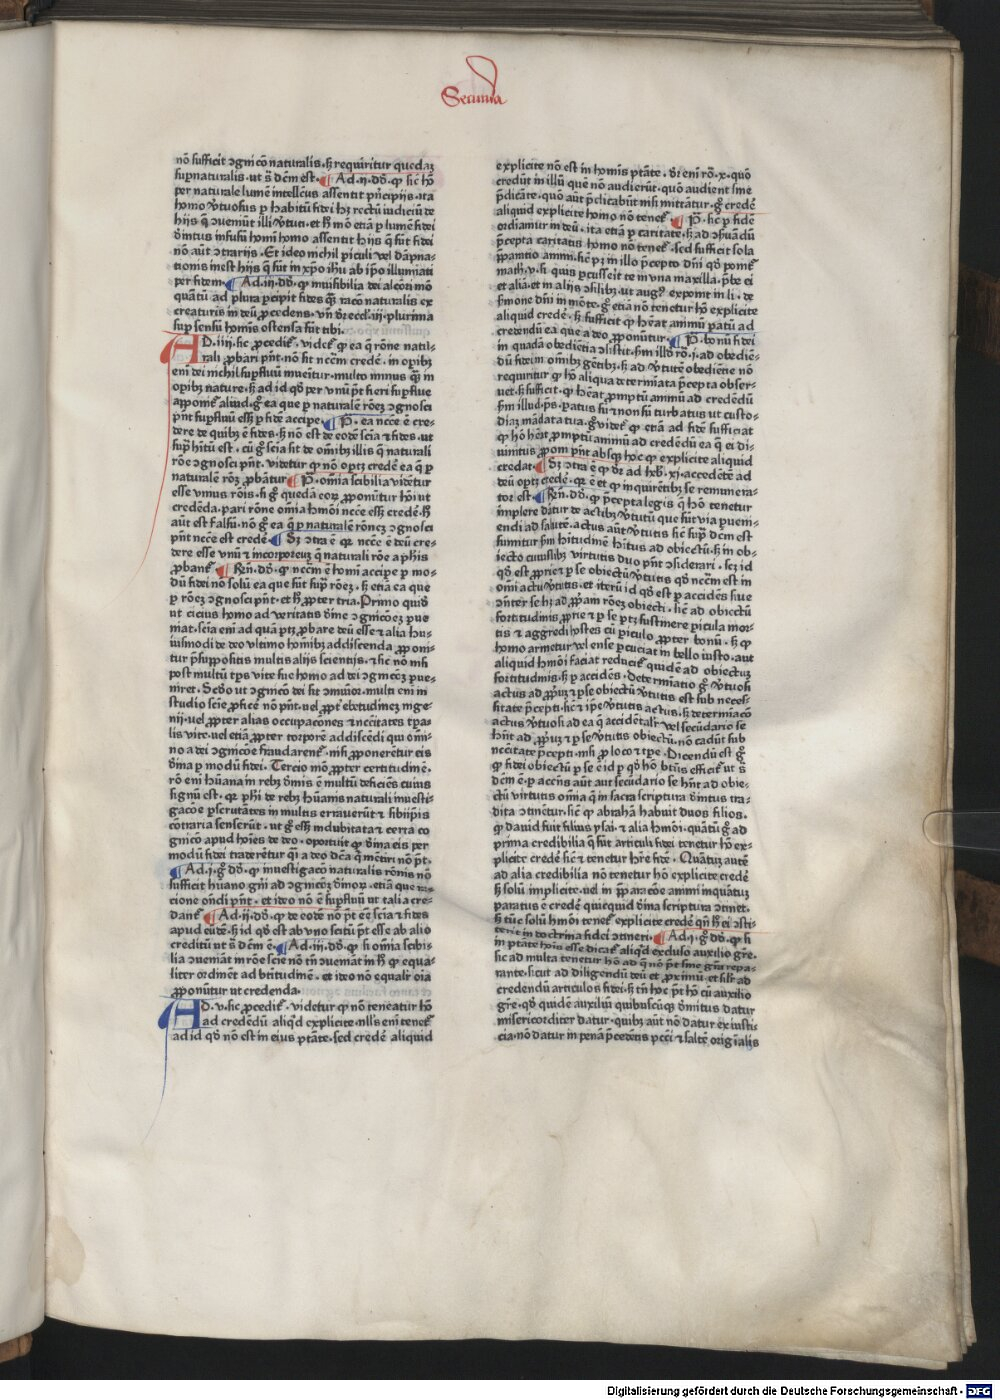 Secunda
nō sufficit ꝯgnicō naturalis. sʒ requiritur quedaʒ
supnaturalis. ut s̄ dcm̄ est. ¶ Ad .ij. dō. ꝙ sic̄ hō
per naturale lumē intellcūs assentit p̄ncipijs. ita
homo v̓tuosus ꝑ habitū fidei hʒ rectū iudiciū de
hijs q̄ ꝯueniūt illi v̓tuti. et hͦ mō etiā ꝑ lumē fidei
d̓initus infusū homī homo assentit hijs q̄ sūt fidei
nō aūt ꝯtrarijs. Et ideo nichil ꝑiculi vel dāpna-
tionis inest hijs q̄ sūt in xp̄o ihū ab ip̄o illuminati
per fidem. ¶ Ad .iij. dō. ꝙ inuisibilia dei alcōri mō
quātū ad plura ꝑcipit fides qͣʒ racō naturalis ex
creaturis in deū ꝓcedens. vn̄ dr̄ eccl̓. iij. plurima
suꝑ sensū hominis ostensa sūt tibi.
AD .iiij. sic ꝓcedit᷑. videt᷑ ꝙ ea q̄ rōne natu-
rali ꝓbari pn̄t. nō sit nccm̄ credē. in oꝑibʒ
eni dei nichil suꝑfluū inueītur. multo minus qͣʒ in
oꝑibʒ nature. sʒ ad id qd̓ per vnū pt̄ fieri suꝑflue
apponit᷑ aliud. gͦ ea que ꝑ naturalē rōeʒ ꝯgnosci
pn̄t suꝑfluū eēt ꝑ fidē accipe. ¶ P̄. ea ncc̄e ē cre-
dere de quibʒ ē fides. sʒ nō est de eodē scīa ⁊ fides. ut
sup̄ hītū est. cū gͦ scīa sit de om̄ibʒ illis q̄ naturali
rōe ꝯgnosci pn̄t. videtur ꝙ nō optʒ credē ea q̄ ꝑ
naturalē rōʒ ꝓbātur. ¶ P̄. om̄ia scibilia vidētur
esse vnius rōis. si gͦ quedā eoꝝ ꝓponūtur hōi ut
credēda. pari rōne om̄ia hmōi ncc̄e eēt credē. hͦ
aūt est falsū. nō gͦ ea q̄ ꝑ naturalē rōneʒ ꝯgnosci
pn̄t ncc̄e est credē. ¶ Sʒ ꝯtra ē qͥ ncc̄e ē deū cre-
dere esse vnū ⁊ incorporeū. q̄ naturali rōe a phīs
ꝓbant᷑. ¶ Rn̄. dō. ꝙ nccm̄ ē homī accipe ꝑ mo-
dū fidei nō solū ea que sūt sup̄ rōeʒ. sʒ etiā ea que
ꝑ rōeʒ ꝯgnosci pn̄t. et hͦ ꝓpter tria. Primo quidē
ut cicius homo ad veritatis d̓ine ꝯgnicōeʒ ꝑue
niat. scīa eni ad quā ptʒ ꝓbare deū esse ⁊ alia hu-
iusmodi de deo vltimo homībʒ addiscenda ꝓponi
tur p̄suppositis multis alijs scientijs. ⁊ sic nō nisi
post multū tꝑs vite sue homo ad dei ꝯgnicōeʒ ꝑue-
niret. Scdō ut ꝯgnicō dei sit ꝯmunior. multi eni in
studio scīe ꝓficē nō pn̄t. vel ꝓpt᷑ ebetudineʒ inge-
nij. vel ꝓpter alias occupacones ⁊ nccītates tꝑa-
lis vite. vel etiā ꝓpter torporē addiscēdi qui omni-
no a dei ꝯgnicōe fraudarent᷑. nisi ꝓponerētur eis
d̓ina ꝑ modū fidei. Tercio mō ꝓpter certitudinē.
rō eni hūana in rebʒ d̓inis ē multū deficiēs cuius
signū est. qͥ phī de rebʒ hūanis naturali inuesti-
gacōe ꝑscrutātes in multis errauerūt ⁊ sibiip̄is
cōtraria senserūt. ut gͦ esset indubitata ⁊ certa co
gnicō apud hoīes de deo. oportuit ꝙ d̓ina eis per
modū fidei traderētur qͣi a deo dc̄a q̄ mētiri nō pt̄.
¶ Ad .j. gͦ dō. ꝙ inuestigacō naturalis rōnis nō
sufficit hūano gn̄i ad ꝯgnicōeʒ d̓inoꝝ. etiā que ra-
cione ondi pn̄t. et ideo nō ē suꝑfluū ut talia cre-
dant᷑. ¶ Ad .ij. dō. ꝙ de eodē nō pt̄ eē scīa ⁊ fides
apud eūdē. sʒ id qd̓ est ab vno scitū pt̄ esse ab alio
creditū ut s̄ dcm̄ ē. ¶ Ad .iij. dō. ꝙ si om̄ia scibi-
lia ꝯueniāt in rōe scīe nō tn̄ ꝯueniāt in hͦ ꝙ equa-
liter ordinēt ad btītudinē. et ideo nō equalr̄ oīa
ꝓponūtur ut credenda.
AD .v. sic ꝓcedit᷑. videtur ꝙ nō teneatur hō
ad credēdū aliqd̓ explicite. nllūs eni tenet᷑
ad id qd̓ nō est in eius ptāte. sed credē aliquid
explicite nō est in homīs ptāte. dr̄ eni rō. x. quō
credūt in illū quē nō audierūt. quō audient sine
p̄dicāte. quō aūt p̄dicabūt nisi mittātur. gͦ credē
aliquid explicite homo nō tenet᷑. ¶ P̄. sic ꝑ fidē
ordinamur in deū. ita etiā ꝑ caritatē. sʒ ad ꝯseruādū
p̄cepta caritatis homo nō tenet᷑. sed sufficit sola
p̄paratio animi. sic ptʒ in illo p̄cepto dn̄i qd̓ ponit᷑
math̓. v. si quis ꝑcusserit te in vna maxilla. p̄be ei
et aliā. et in alijs ꝯsilibʒ. ut augꝰ exponit in li. de
s̓mone dn̄i in mōte. gͦ etiā nō tenetur hō explicite
aliquid credē. sʒ sufficit ꝙ hēat animū patū ad
credendū ea que a deo ꝓponūtur. ¶ P̄. bonū fidei
in quadā obediētia ꝯsistit. sm̄ illud rō. j. ad obediē-
dū fidei in om̄ibʒ gētibʒ. sʒ ad v̓tutē obediētie nō
requiritur ꝙ hō aliqua determiata p̄cepta obser-
uet. sʒ sufficit. ꝙ hēat ꝓmptū animū ad credēdū
sm̄ illud. ps. ꝑatus sū ⁊ non sū turbatus ut custo-
diaʒ mādata tua. gͦ videt᷑ ꝙ etiā ad fidē sufficiat
ꝙ hō hēat ꝓmptū animū ad credēdū ea q̄ ei di-
uinitus ꝓponi pn̄t absqʒ hͦ ꝙ explicite aliquid
credat. ¶ Sʒ ꝯtra ē qd̓ dr̄ ad heb̓. xj. accedētē ad
deū optʒ credē. qͥ ē et ꝙ inquirētibʒ se remunera-
tor est. ¶ Rn̄. dō. ꝙ p̄cepta legis q̄ hō tenetur
implere dātur de actibʒ v̓tutū que sūt via ꝑueni-
endi ad salutē. actus aūt v̓tutis sic̄ sup̄ dcm̄ est
sumitur sm̄ hītudinē hītus ad obiectū. sʒ in ob-
iecto cuiuslibʒ virtutis duo pn̄t ꝯsiderari. scʒ id
qd̓ est ꝓprie ⁊ ꝑ se obiectū v̓tutis qd̓ nccm̄ est in
omī actu v̓tutis. et iterū id qd̓ est ꝑ accidēs siue
ꝯn̄ter se hʒ ad ꝓp̄am rōeʒ obiecti. sic̄ ad obiectū
fortitudinis ꝓprie ⁊ ꝑ se ptʒ sustinere ꝑicula mor-
tis ⁊ aggredi hostes cū ꝑiculo ꝓpter bonū. sʒ ꝙ
homo armetur vel ense ꝑcuciat in bello iusto. aut
aliquid hmōi faciat reducit᷑ quidē ad obiectum
fortitudinis. sʒ ꝑ accidēs. Determiatio gͦ v̓tuosi
actus ad ꝓpriū ⁊ ꝑ se obiectū v̓tutis est sub neces-
sitate p̄cepti. sic̄ ⁊ ip̄e v̓tutis actus. sʒ determiacō
actus v̓tuosi ad ea q̄ accidētalr̄ vel secūdario se
hn̄t ad ꝓpriū ⁊ ꝑ se v̓tutis obiectū. nō cadūt sub
nccitate p̄cepti. nisi ꝓ loco ⁊ tꝑe. Dicendū est gͦ
ꝙ fidei obiectū ꝑ se ē id ꝑ qd̓ hō btūs efficit᷑ ut s̄
dcm̄ ē. ꝑ accn̄s aūt aut secūdario se hn̄t ad obie-
ctū virtutis om̄ia q̄ in sacra scriptura d̓initus tra-
dita ꝯtinētur. sic̄ ꝙ abrahā habuit duos filios.
ꝙ dauid fuit filius ysai. ⁊ alia hmōi. quātū gͦ ad
prima credibilia q̄ sūt articuli fidei tenetur hō ex-
plicite credē sic̄ ⁊ tenetur hr̄e fidē. Quātuʒ autē
ad alia credibilia nō tenetur hō explicite credē
sʒ solū implicite. vel in p̄paracōe animi inquātuʒ
paratus ē credē quicquid d̓ina scriptura ꝯtinet.
sʒ tūc solū hmōi tenet᷑ explicite credē qn̄ hͦ ei ꝯsti-
terit in doctrina fidei ꝯtineri. ¶ Ad .j. gͦ dō. ꝙ si
in ptāte hoīs esse dicat᷑ aliqd̓ excluso auxilio gr̄e.
sic ad multa tenetur hō ad q̄ nō pt̄ sine gr̄a repa-
rante. sicut ad diligendū deū et ꝓximū. et silr̄ ad
credendū articulos fidei. sʒ tn̄ hͦ pt̄ hō cū auxilio
gr̄e. qd̓ quidē auxiliū quibuscūqʒ d̓initus datur
misericorditer datur. quibʒ aūt nō datur ex iusti-
cia nō datur in penā p̄cedētis pcc̄i ⁊ saltē originalis
Digitalisierung gefördert durch die Deutsche Forschungsgemeinschaft - DFG